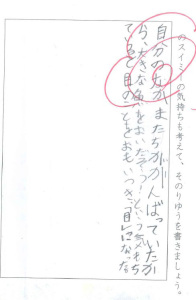 のスイミーの気持ちも考えて、そのりゆうを書きましょう。
自分の友がまたちががんばっていたか
ら、大きな魚をおいだそう！という気もち
でいると目のことをおもいつき、目になった